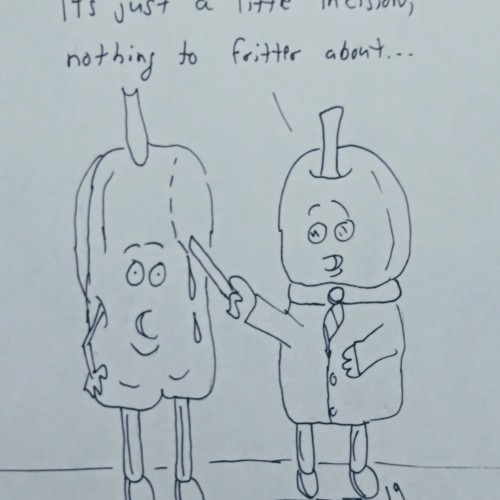 It's just a little incision,
nothing to fritter about...
19